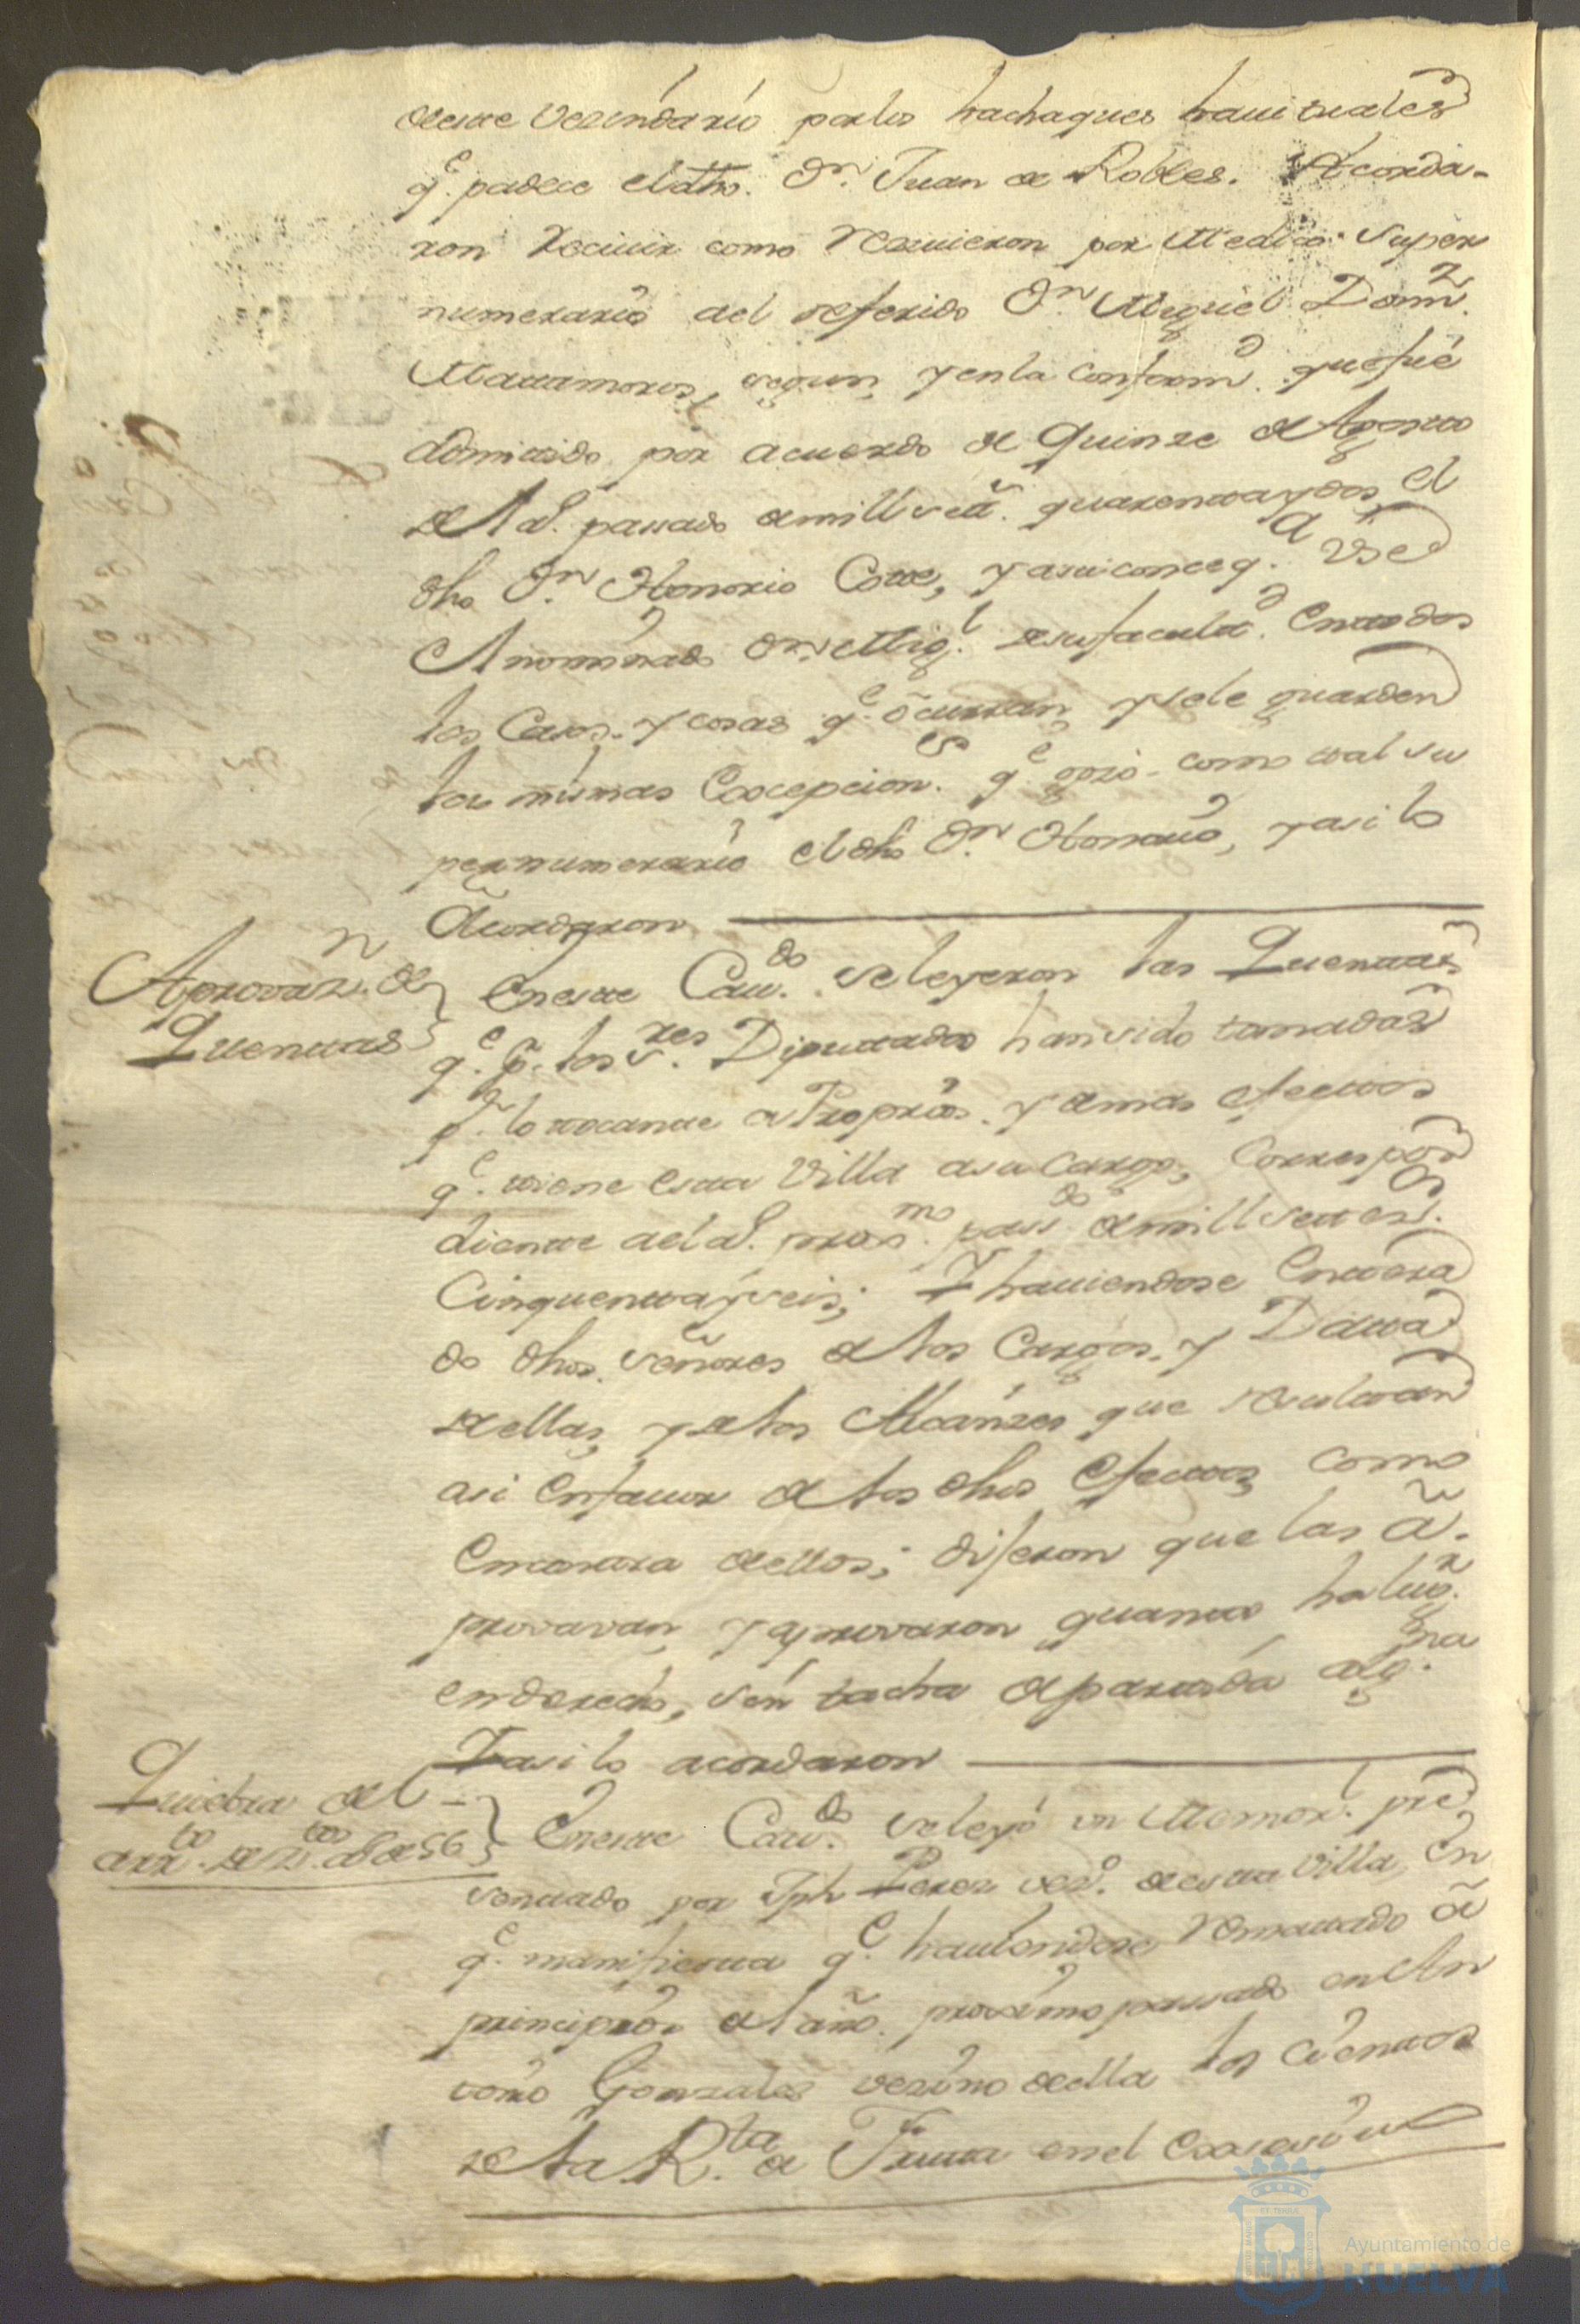 deste Vezindario por los hachaques havituales
q.e padece el dho. Dn. Juan de Robles. Acorda-
ron Recivir como Recivieron por Medico super
numerario del referido Dn. Miguel Domz.
Matamoros, segun, y en la conform.d que fue
admitido por acuerdo de Quinze de Agosto
del A.o passado de mill sett.s quarenta y dos el
dho Dn. Honorio Cotte, y a su conseq.a Use
el nominado Dn. Mig.l de su facultad. En todos
los Casos. y cosas q.e ocurran, y se le guarden
las mismas Excepcion.es q.e gozó como tal su
pernumerario el dho Dn. Honorio, y asi lo
Acordaron
Aprovaz.n de
Quentas
En este Cav.do se leyeron las Quentas
q.e p.r los S.res Diputados han sido tomadas
p.r lo tocante a Propios. y demas efectos
q.e tiene esta Villa a su Cargo, Correspon
diente al a.o prox.mo pass.do de mill settes.
Cinquenta y seis; Y haviendose Entera
do dhos. señores de los Cargos. y Datta
de ellas, y de los Alcanzes que resultan
asi en favor de los dhos Efectos, como
en contra de ellos; dijeron que las a-
provavan, y aprovaron quanto ha lug.r
en derecho, sin tacha de partida alg.na
Y asi lo acordaron
Quiebra del
arr.to de v.to de 56
En este Cav.do se leyó un Memor.l pre
sentado por Jph Perez vez.o de esta Villa, En
q.e manifiesta q.e haviendose Rematado a
principios del año. proximo passado en An
tonio Gonzales vezino de ella los cientos
de la R.ta de Fruta en el